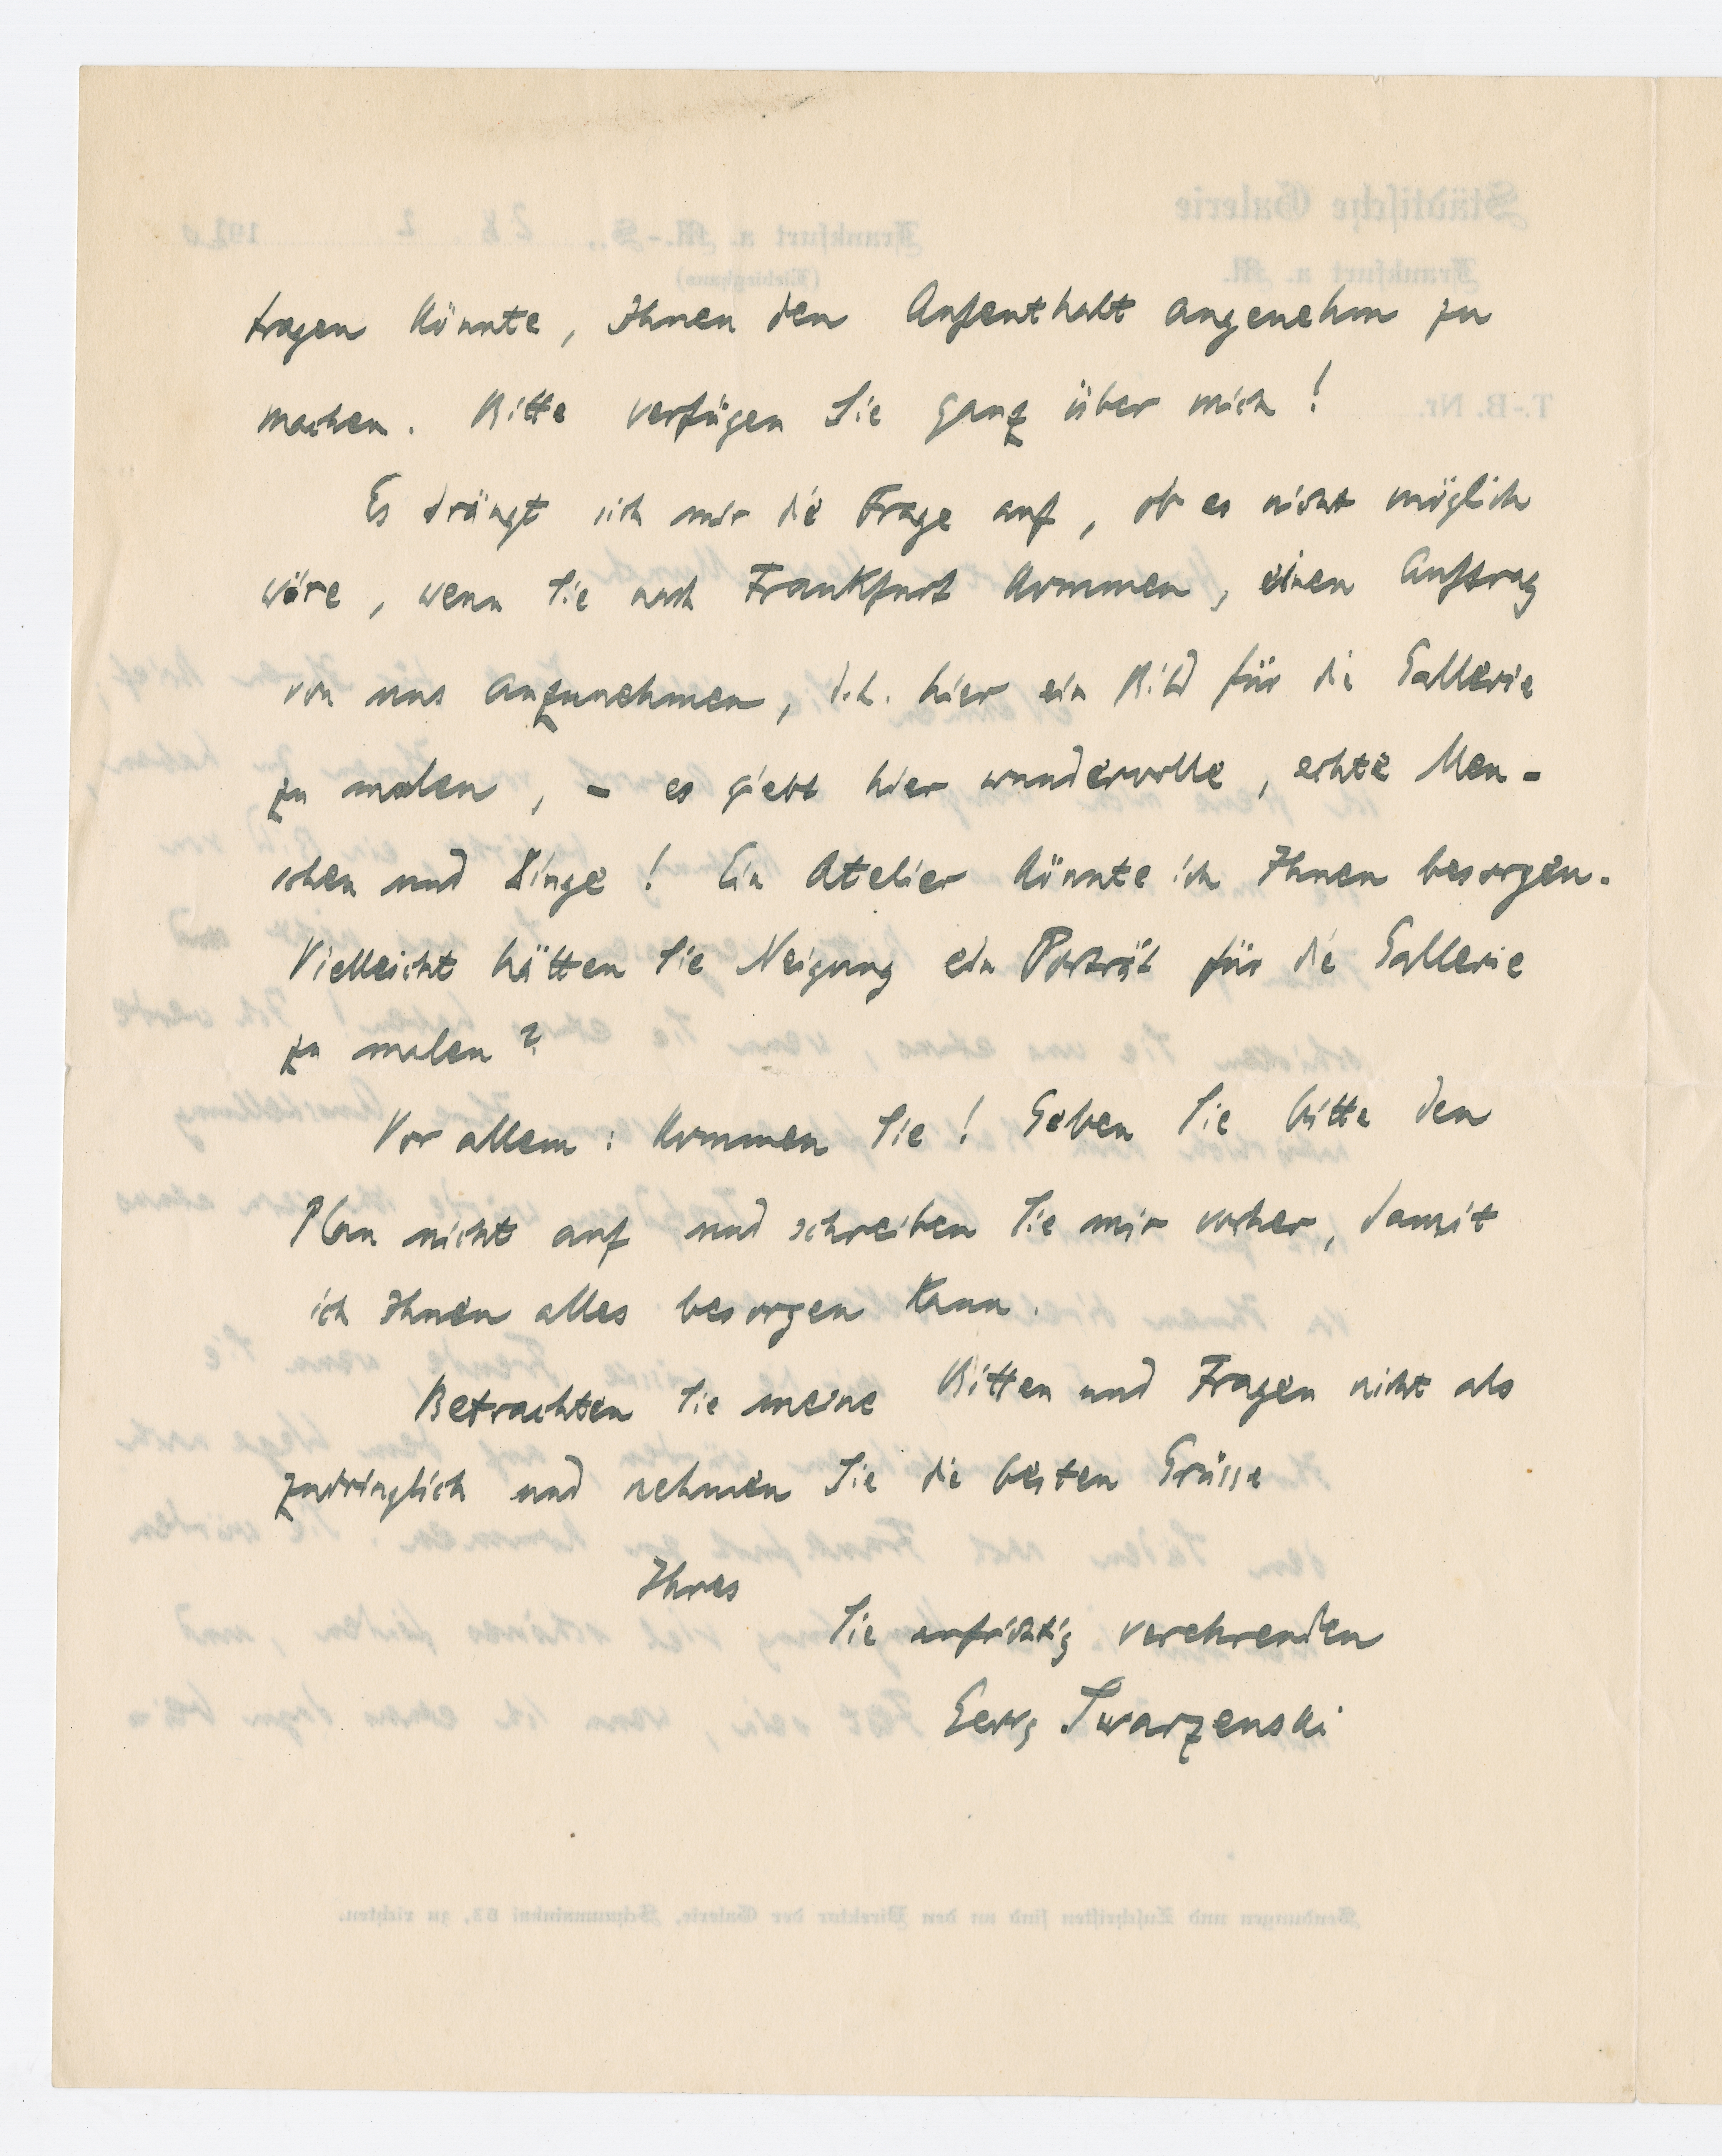 tragen könnte, Ihnen den Aufenthalt angenehm zu
machen. Bitte verfügen Sie ganz über mich!
Es drängt sich mir die Frage auf, ob es nicht möglich
wäre, wenn Sie nach Frankfurt kommen, einen Auftrag
von uns anzunehmen, d.h. hier ein Bild für die Gallerie
zu malen, - es giebt hier wundervolle, echte Men-
schen und Dinge! Ein Atelier könnte ich Ihnen besorgen.
Vielleicht hätten Sie Neigung ein Porträt für die Gallerie
zu malen?
Vor allem: kommen Sie! Geben Sie bitte den
Plan nicht auf und schreiben Sie mir vorher, damit
ich Ihnen alles besorgen kann.
Betrachten Sie meine Bitten und Fragen nicht als
zudringlich und nehmen Sie die besten Grüsse
Ihres
Sie aufrichtig verehrenden
Georg Swarzenski